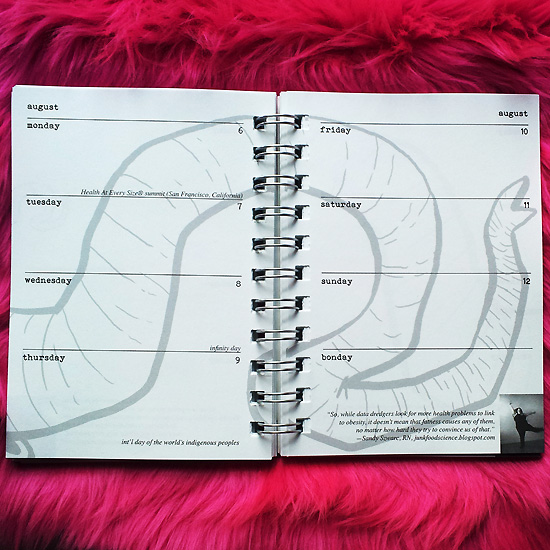 august
monday 6
Health At Every Size® summit (San Francisco, California)
tuesday 7
wednesday 8
infinity day
thursday 9
int'l day of the world's indigenous peoples
august
friday 10
saturday 11
sunday 12
bonday
"So, while data dredgers look for more health problems to link
to obesity, it doesn't mean that fatness causes any of them,
no matter how hard they try to convince us of that."
—Sandy Szwarc, RN, junkfoodscience.blogspot.com